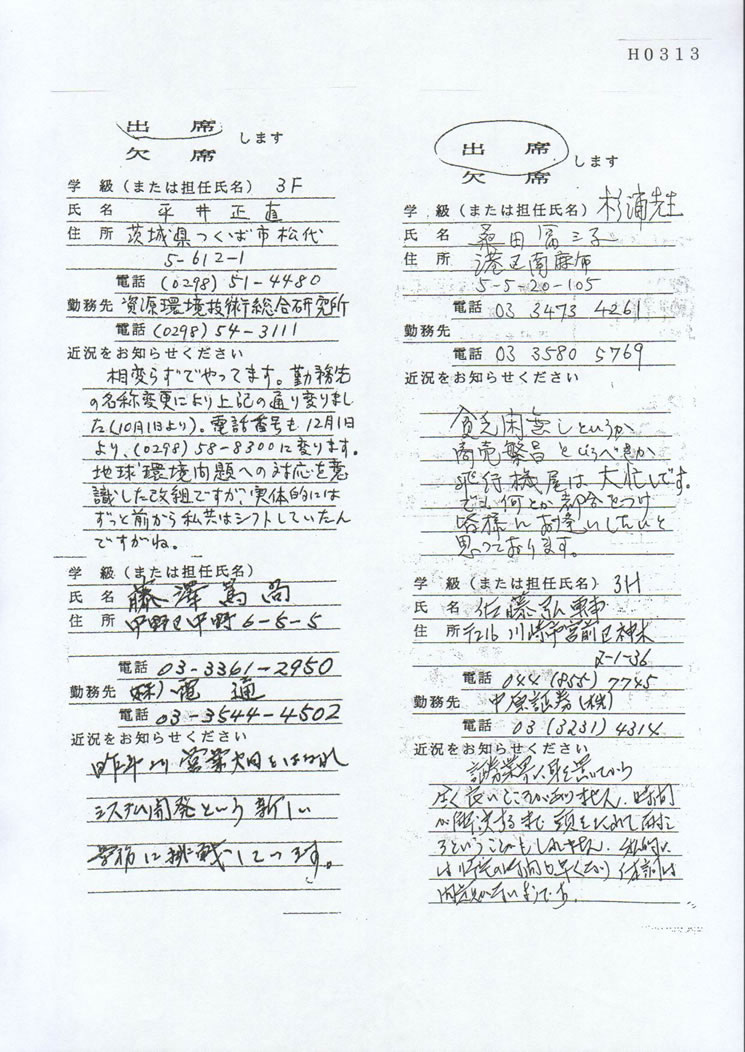 H0313
出 席 します
欠 席
学 級(または担任氏名) 3F
氏 名 平井正直
住 所 茨城県つくば市松代
5-612-1
電話 (0298) 51-4480
勤務先 資源環境技術総合研究所
電話 (0298) 54-3111
近況をお知らせください
相変らずでやってます。勤務先
の名称変更により上記の通り変りまし
た(10月1日より)。電話番号も12月1日
より、(0298) 58-8300に変ります。
地球環境問題への対応を意
識した改組ですが、実体的には
ずっと前から私共はシフトしていたん
ですがね。
学 級(または担任氏名)
氏 名 藤澤篤尚
住 所 中野区中野6-5-5
電話 03-3361-2950
勤務先 (株)電通
電話 03-3544-4502
近況をお知らせください
昨年 営業畑をはなれ
システム開発という新しい
業務に挑戦しています。
出 席 します
欠 席
学 級(または担任氏名) 杉浦先生
氏 名 桑田富三子
住 所 港区南麻布
5-5-20-105
電話 03 3473 4261
勤務先
電話 03 3580 5769
近況をお知らせください
貧乏閑無しというか
商売繁昌というべきか
飛行機屋は大忙しです。
でも何とか都合をつけ
皆様にお逢いしたいと
思っております。
学 級(または担任氏名) 3H
氏 名 佐藤弘
住 所 〒216 川崎市宮前区神木
2-1-36
電話 044 (855) 7745
勤務先 中原証券(株)
電話 03 (3231) 4314
近況をお知らせください
証券業界
良いところがありません。時間
が解決するまで頭を
ろということかもしれません。私的に
は 時間 早く 体調は